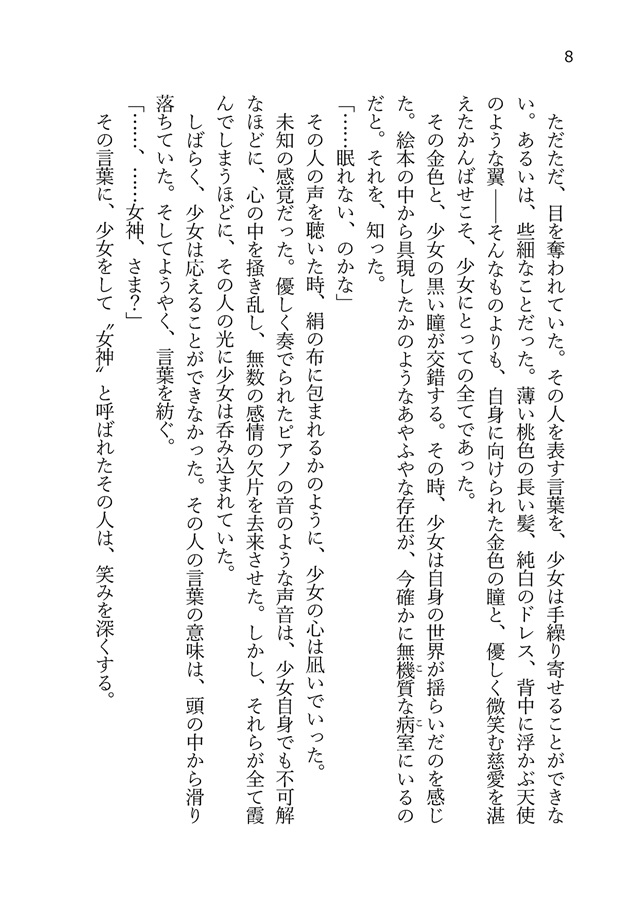 8
ただただ、目を奪われていた。その人を表す言葉を、少女は手繰り寄せることができな
い。あるいは、些細なことだった。薄い桃色の長い髪、純白のドレス、背中に浮かぶ天使
のような翼――そんなものよりも、自身に向けられた金色の瞳と、優しく微笑む慈愛を湛
えたかんばせこそ、少女にとっての全てであった。
その金色と、少女の黒い瞳が交錯する。その時、少女は自身の世界が揺らいだのを感じ
た。絵本の中から具現したかのようなあやふやな存在が、今確かに無機質な病室にいるの
だと。それを、知った。
「……眠れない、のかな」
その人の声を聴いた時、絹の布に包まれるかのように、少女の心は凪いでいった。
未知の感覚だった。優しく奏でられたピアノの音のような声音は、少女自身でも不可解
なほどに、心の中を掻き乱し、無数の感情の欠片を去来させた。しかし、それらが全て霞
んでしまうほどに、その人の光に少女は呑み込まれていた。
しばらく、少女は応えることができなかった。その人の言葉の意味は、頭の中から滑り
落ちていた。そしてようやく、言葉を紡ぐ。
「……、……女神、さま？」
その言葉に、少女をして〝女神〟と呼ばれたその人は、笑みを深くする。